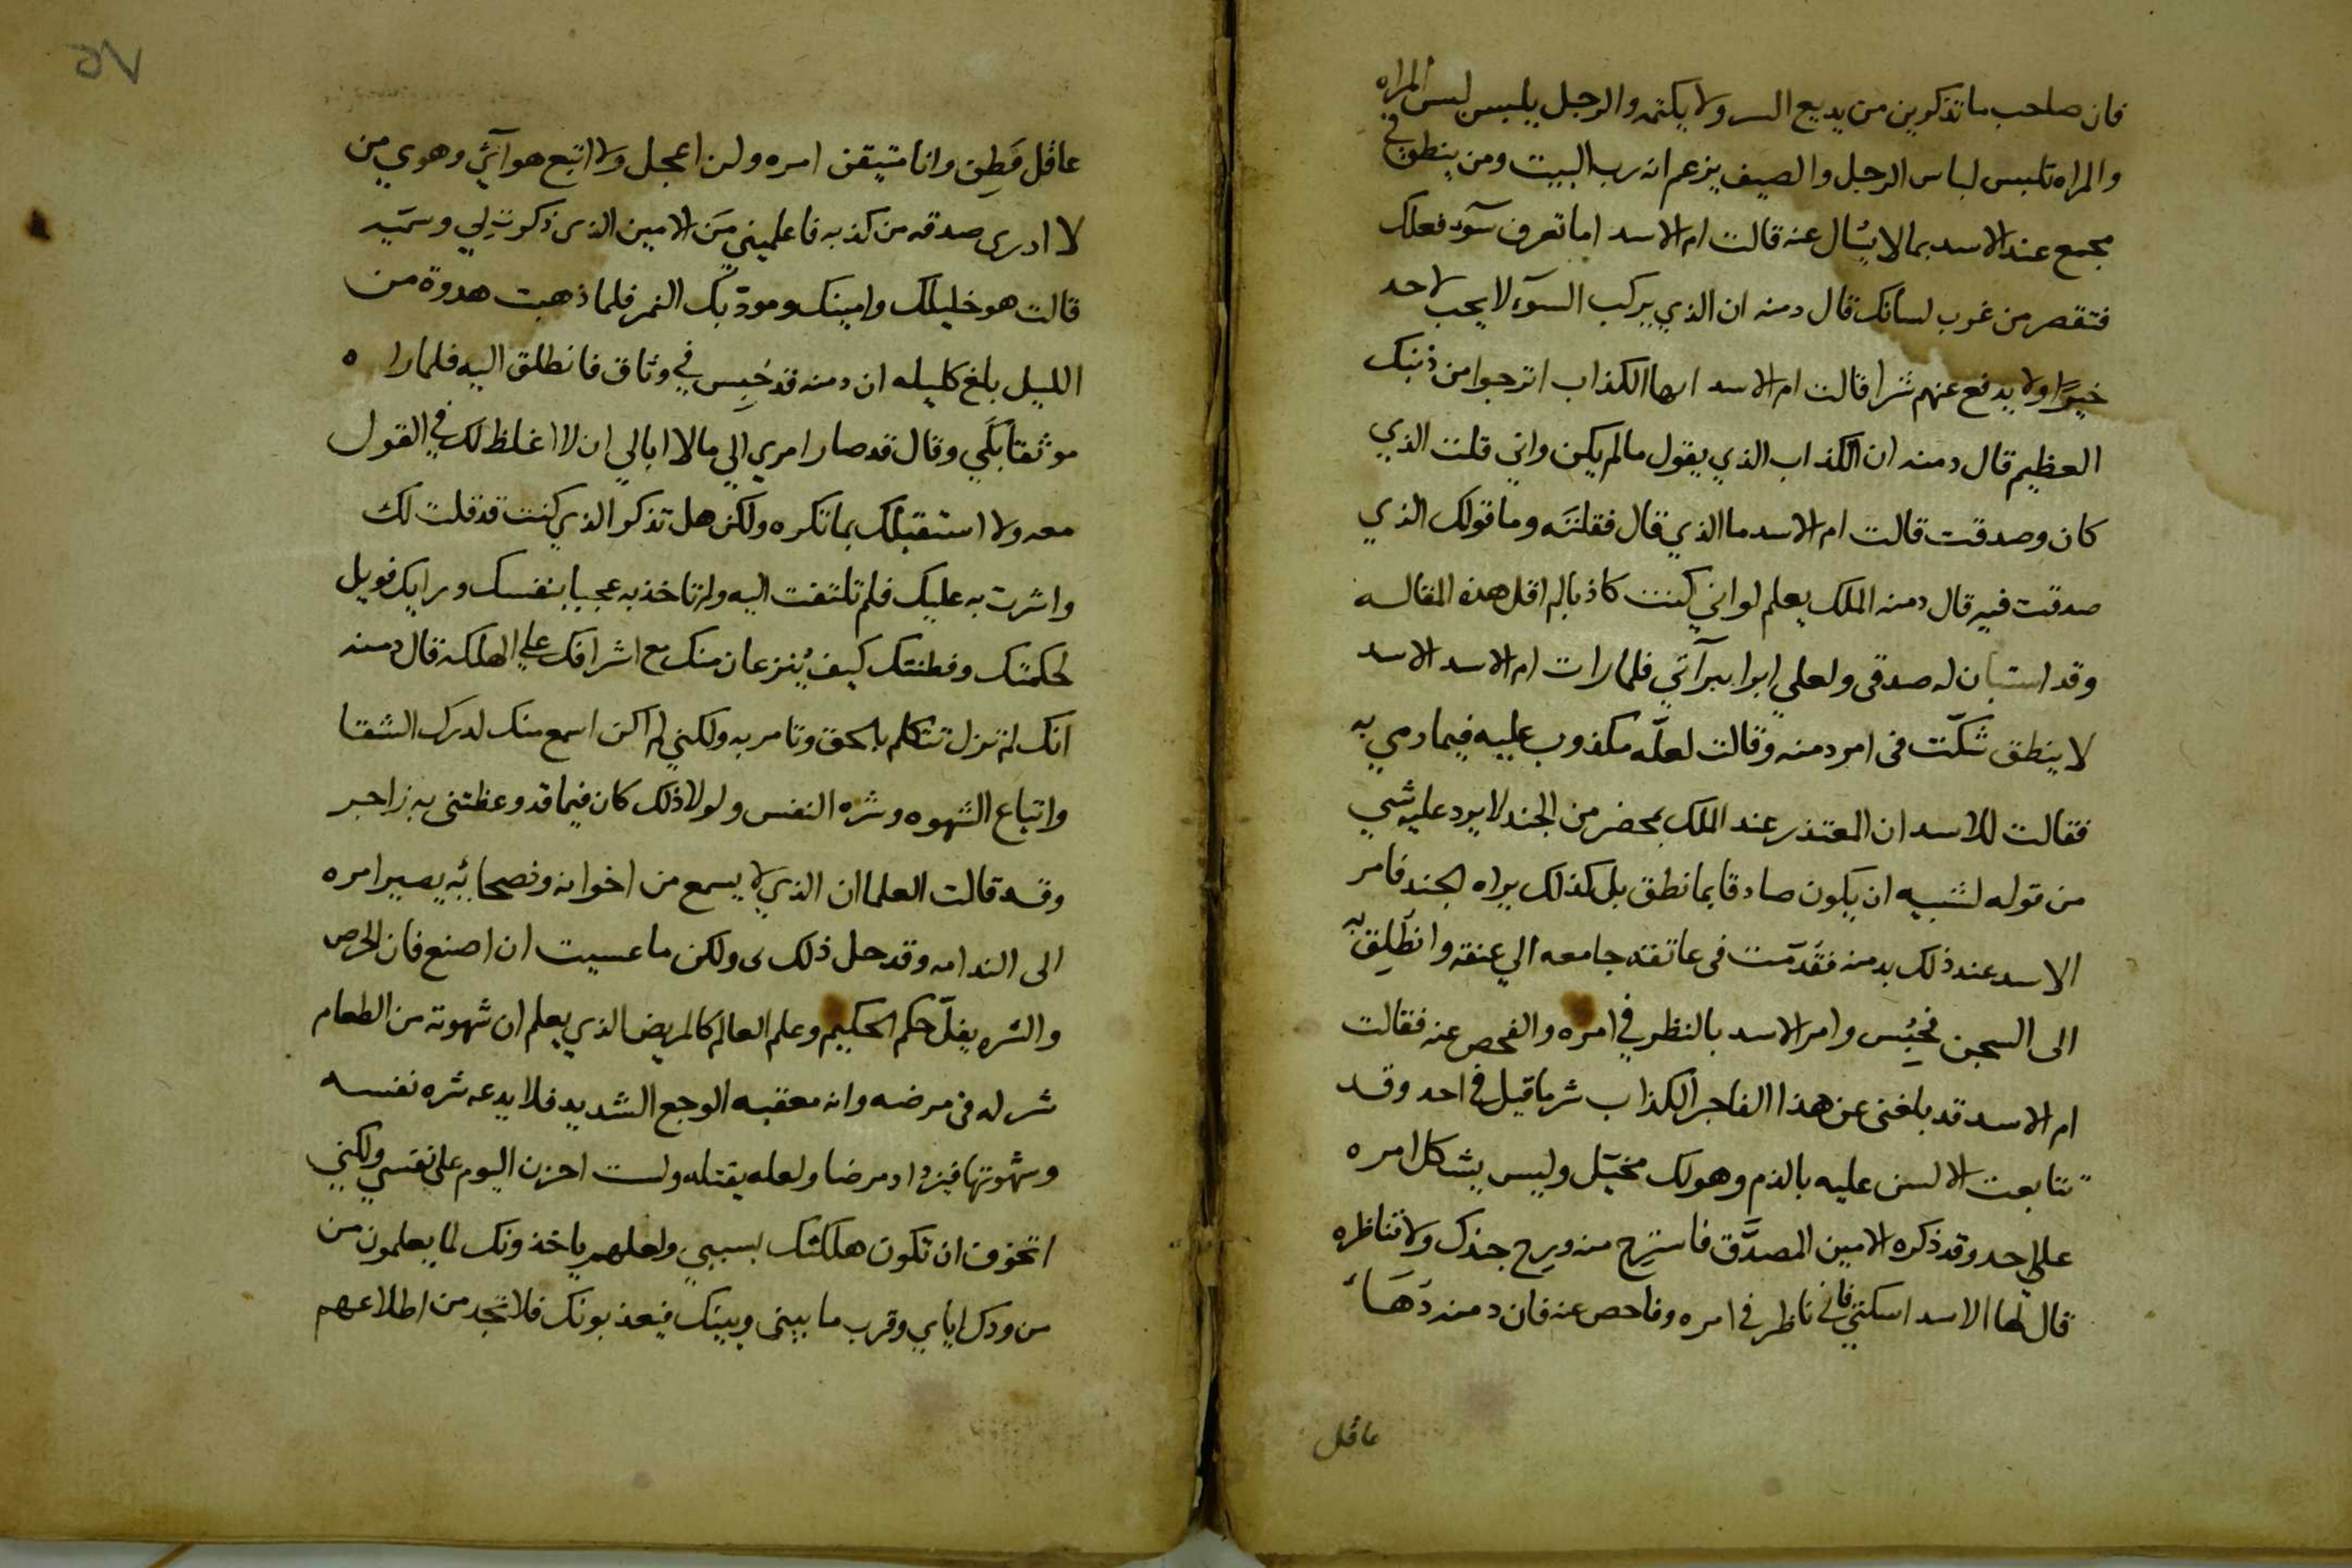 فان صاحب ما تذكرين من يديع السر ولا يكتمه والرجل يلبس لبس المراه
والمراه تلبس لباس الرجل والضيف يزعم انه رب البيت ومن ينطق في
مجمع عند الاسد بما لا يسُال عنه قالت ام الاسد اما تعرف سوٓء فعلك
فتقصر من غرب لسانك قال دمنه ان الذي يركب السوٓء لا يحب لاحد
خيرًا ولا يدفع عنهم شرا قالت ام الاسد ايها الكذاب اترجوا من ذنبك
العظيم قال دمنه ان الكذاب الذي يقول ما لم يكن واني قلت الذي
كان وصدقت قالت ام الاسد ما الذي قال فقلتَه وما قولك الذي
صدقت فيه قال دمنه الملك يعلم لو اني كنت كاذبا لم اقل هذه المقاله
وقد استبان له صدقي ولعلي ابرا ببرآتي فلما رات ام الاسد الاسد
لا ينطق شكّت في امر دمنه وقالت لعلّه مكذوب عليه فيما رمي به
فقالت للاسد ان المعتذر عند الملك بمحضر من الجند لا يرد عليه شي
من قوله لشبيه ان يكون صادقا بما نطق بل كذلك يراه الجند فامر
الاسد عند ذلك بدمنه فقدّمت في عاتقه جامعه الي عنقه وانطُلِق به
الى السجن فحُبِس وامر الاسد بالنظر في امره والفحص عنه فقالت
ام الاسد قد بلغني عن هذا الفاجر الكذاب شر ما قيل في احد وقد
تتابعت الالسن عليه بالذم وهو لك مخيّل وليس يشكل امره
علي احد وقد ذكره الامين المصدَّق فاسترح منه ويرح جندك ولا تناظره
قال لها الاسد اسكتي فاني ناظر في امره وفاحص عنه فان دمنه دَهَاءٌ
عاقل
٧٥
عاقل فَطِن وانا متيقن امره ولن اعجل ولا اتبع هوآئي وهوي من
لا ادري صدقه من كذبه فاعلميني مَن الامين الذي ذكرتِ لي وسمّيه
قالت هو خليلك وامينك ومودّبك النمر فلما ذهبت هدوة من
الليل بلغ كليله ان دمنه قد حُبِس في وثاق فانطلق اليه فلما راه
موثقا بكَي وقال قد صار امري الي ما لا ابالي ان لا اغلظ لك في القول
معه ولا استقبلك بما تكره ولكن هل تذكر الذي كنت قد قلت لك
واشرت به عليك فلم تلتفت اليه ولم تاخذ به عجبا بنفسك ورايك فويل
لحكمتك وفطنتك كيف يُنزعان منك مع اشرافك علي الهلكه قال دمنه
انك لم تزل تتكلم بالحق وتامر به ولكني لم اكن اسمع منك لدرك الشقا
واتباع الشهوه وشره النفس ولولا ذلك كان فيما قد وعظتني به زاجر
وقد قالت العلما ان الذي لا يسمع من اخوانه ونصحائه يصير امره
الى الندامه وقد حل ذلك بى ولكن ما عسيت ان اصنع فان الحرص
والشره يغلّ حكم الحكيم وعلم العالم كالمريض الذي يعلم ان شهوته من الطعام
شر له في مرضه وانه معقبه الوجع الشديد فلا يدعه شره نفسه
وشهوتها فيزداد مرضا ولعله يقتله ولست احزن اليوم على نفسي ولكني
اتخوف ان تكون هلكتك بسببي ولعلهم ياخذونك لما يعلمون من
من ودك اياي وقرب ما بيني وبينك فيعذبونك فلا تجد من اطلاعهم